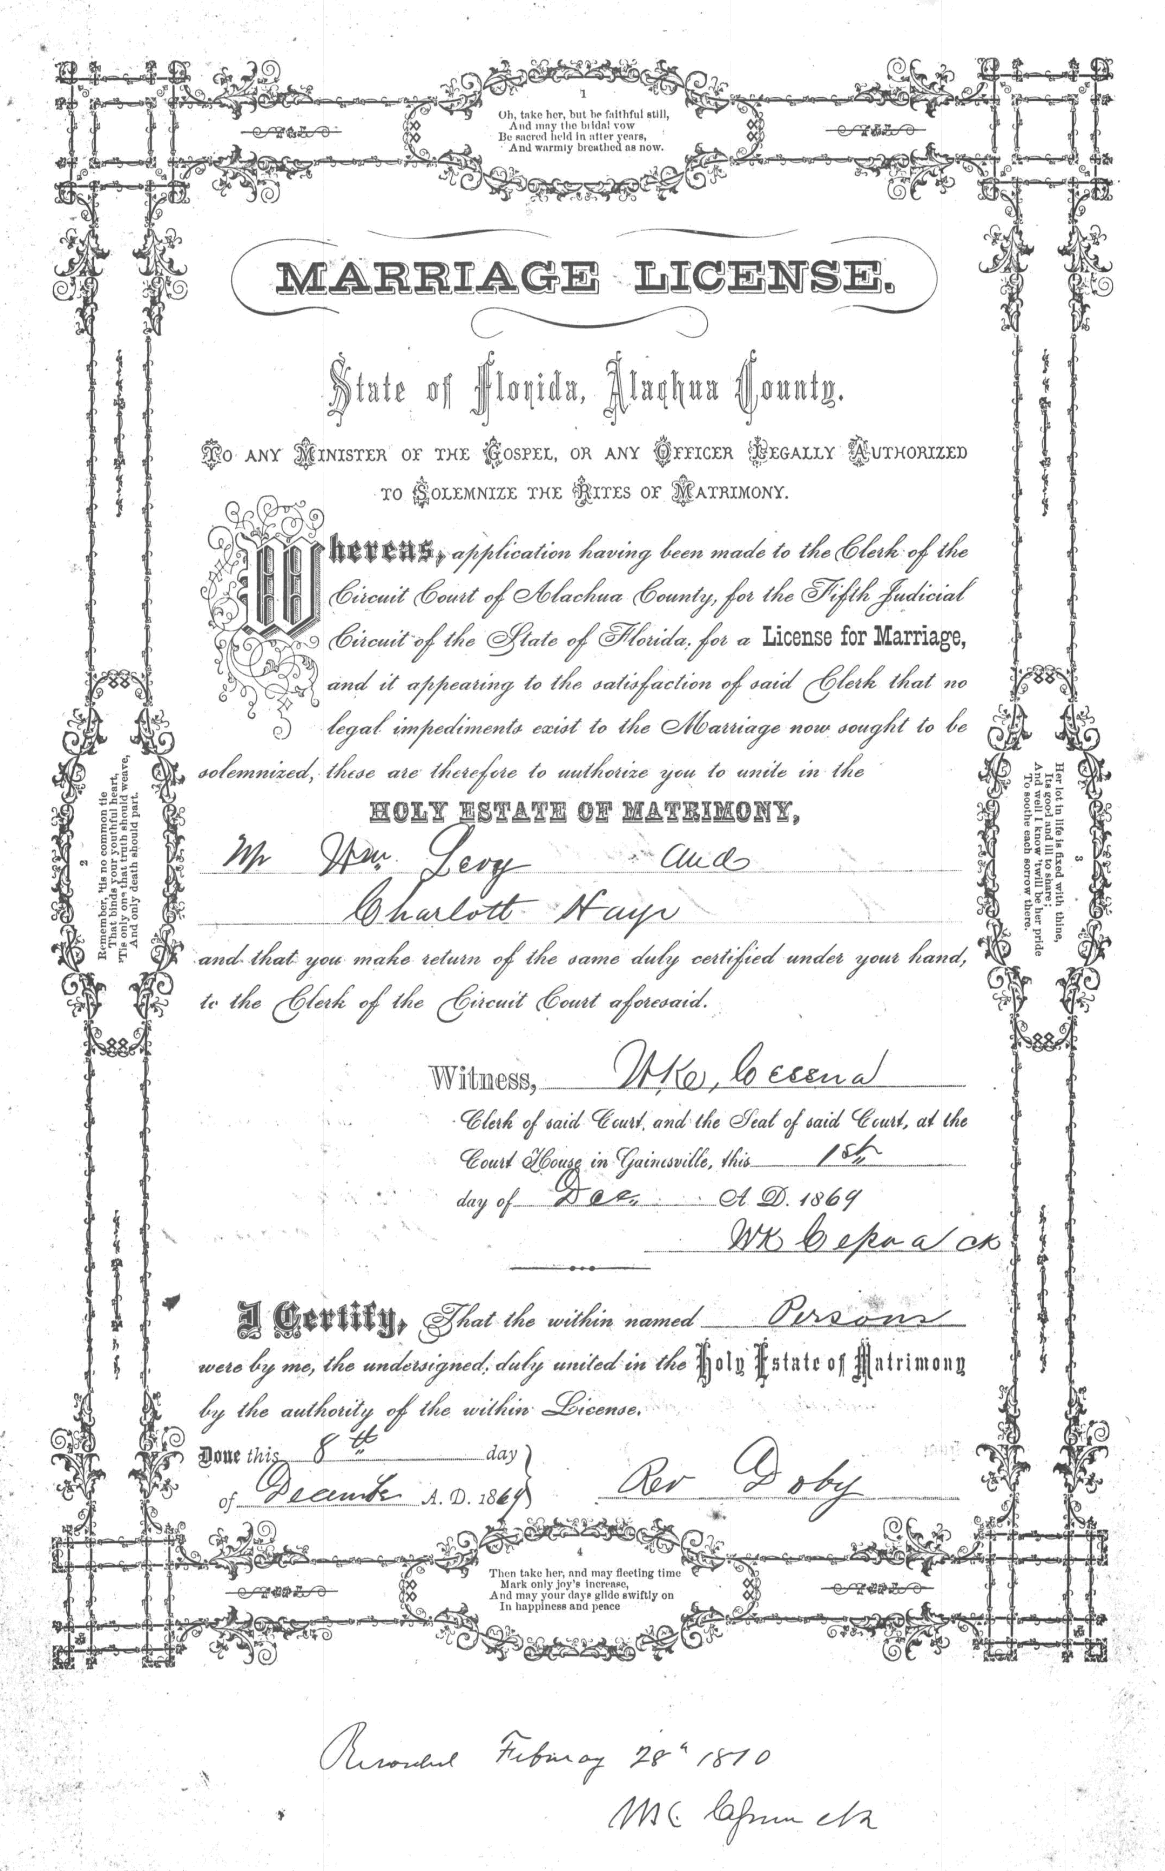 1
Oh, take her, but be faithful still,
And may the bridal vow
Be sacred held in after years,
And warmly breathed as now.
MARRIAGE LICENSE.
State of Florida, Alachua County.
TO ANY MINISTER OF THE GOSPEL, OR ANY OFFICER LEGALLY AUTHORIZED
TO SOLEMNIZE THE RITES OF MATRIMONY.
Whereas, application having been made to the Clerk of the
Circuit Court of Alachua County, for the Fifth Judicial
Circuit of the State of Florida, for a License for Marriage,
and it appearing to the satisfaction of said Clerk that no
legal impediments exist to the Marriage now sought to be
solemnized, these are therefore to authorize you to unite in the
HOLY ESTATE OF MATRIMONY,
Mr Wm. Levy and
Charlott Hays
and that you make return of the same duly certified under your hand,
to the Clerk of the Circuit Court aforesaid.
2
Remember, 'tis no common tie
That binds your youthful heart,
'Tis only one that truth should weave,
And only death should part.
3
Her lot in life is fixed with thine,
Its good and ill to share;
And well I know 'twill be her pride
To soothe each sorrow there.
Witness, WK, Cessna
Clerk of said Court, and the Seal of said Court, at the
Court House in Gainesville, this 1st
day of Dec. A. D. 1869
WK Cessna Ck
I Certify, That the within named Persons
were by me, the undersigned, duly united in the Holy Estate of Matrimony
by the authority of the within License.
Done this 8th day
of December A. D. 1869
Rev Doby
4
Then take her, and may fleeting time
Mark only joy's increase,
And may your days glide swiftly on
In happiness and peace
Recorded February 28th 1870
Clk